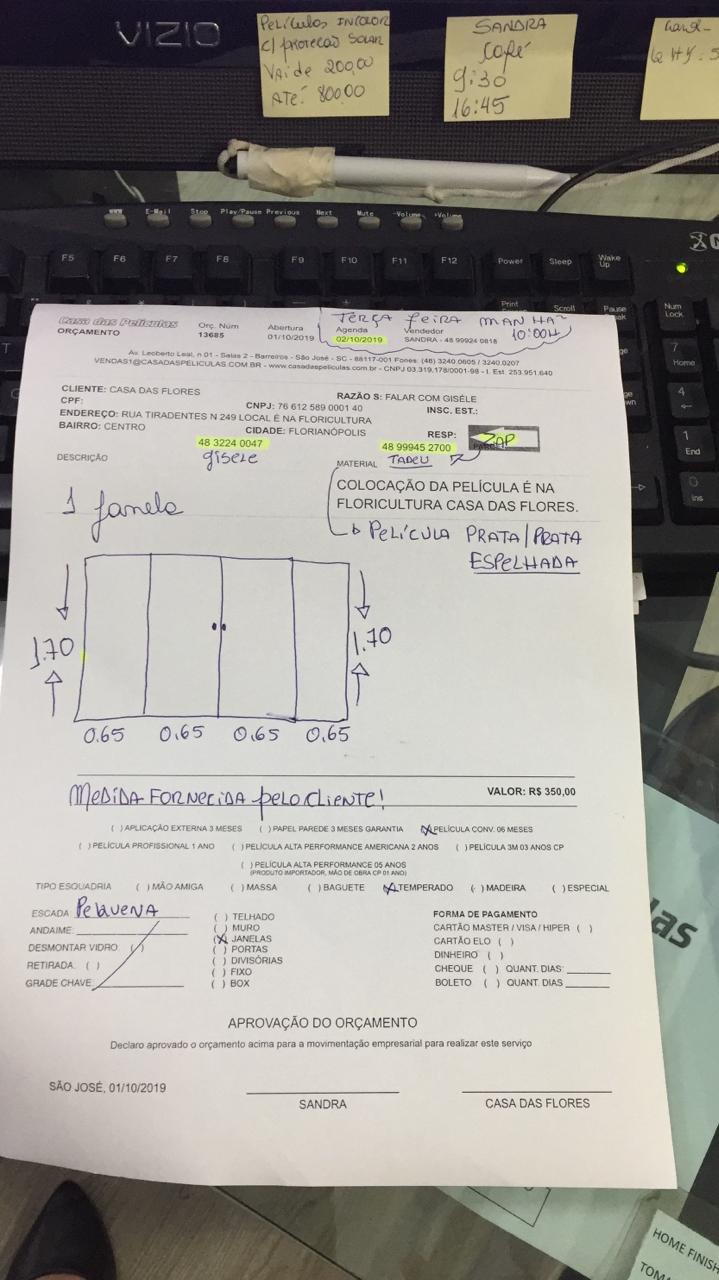 VIZIO
PELÍCULAS INCOLOR
C/ PROTECAO SOLAR
VAI de 200,00
ATÉ: 800,00
SANDRA
Café
9:30
16:45
WWW E-Mail Stop Play/Pause Previous Next Mute -Volume +Volume
F5 F6 F7 F8 F9 F10 F11 F12 Power Sleep Wake Up
Print Scroll Pause Num Lock
7 Home
4
1 End
0 Ins
TERÇA feira MANHÃ
10:00H
Casa das Películas
ORÇAMENTO
Orç. Núm
13685
Abertura
01/10/2019
Agenda
02/10/2019
Vendedor
SANDRA - 48 99924 0818
Av. Leoberto Leal, n 01 - Salas 2 - Barreiros - São José - SC - 88117-001 Fones: (48) 3240.0605 / 3240.0207
VENDAS1@CASADASPELICULAS.COM.BR - www.casadaspeliculas.com.br - CNPJ 03.319.178/0001-98 - I. Est. 253.951.640
CLIENTE: CASA DAS FLORES
RAZÃO S: FALAR COM GISÉLE
CPF:
CNPJ: 76 612 589 0001 40
INSC. EST.:
ENDEREÇO: RUA TIRADENTES N 249 LOCAL É NA FLORICULTURA
BAIRRO: CENTRO
CIDADE: FLORIANÓPOLIS
RESP:
ZAP
48 3224 0047
48 99945 2700
gisele
TADEU
DESCRIÇÃO
MATERIAL
1 Janela
COLOCAÇÃO DA PELÍCULA É NA
FLORICULTURA CASA DAS FLORES.
PELÍCULA PRATA/PRATA
ESPELHADA
1.70
1.70
0.65 0.65 0.65 0.65
MEDIDA FORNECIDA pelo CLIENTE!
VALOR: R$ 350,00
( ) APLICAÇÃO EXTERNA 3 MESES ( ) PAPEL PAREDE 3 MESES GARANTIA (X) PELÍCULA CONV. 06 MESES
( ) PELÍCULA PROFISSIONAL 1 ANO ( ) PELÍCULA ALTA PERFORMANCE AMERICANA 2 ANOS ( ) PELÍCULA 3M 03 ANOS CP
( ) PELÍCULA ALTA PERFORMANCE 05 ANOS
(PRODUTO IMPORTADOR, MÃO DE OBRA CP 01 ANO)
TIPO ESQUADRIA ( ) MÃO AMIGA ( ) MASSA ( ) BAGUETE (X) TEMPERADO ( ) MADEIRA ( ) ESPECIAL
ESCADA PEQUENA
ANDAIME:
DESMONTAR VIDRO: ( )
RETIRADA: ( )
GRADE CHAVE:
( ) TELHADO
( ) MURO
(X) JANELAS
( ) PORTAS
( ) DIVISÓRIAS
( ) FIXO
( ) BOX
FORMA DE PAGAMENTO
CARTÃO MASTER / VISA / HIPER ( )
CARTÃO ELO ( )
DINHEIRO ( )
CHEQUE ( ) QUANT. DIAS:
BOLETO ( ) QUANT. DIAS
APROVAÇÃO DO ORÇAMENTO
Declaro aprovado o orçamento acima para a movimentação empresarial para realizar este serviço
SÃO JOSÉ, 01/10/2019
SANDRA
CASA DAS FLORES
HOME FINISH